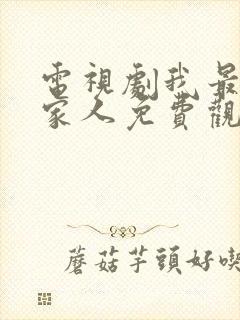 電視劇我最
家人免費觀
蘑菇芋頭好喫